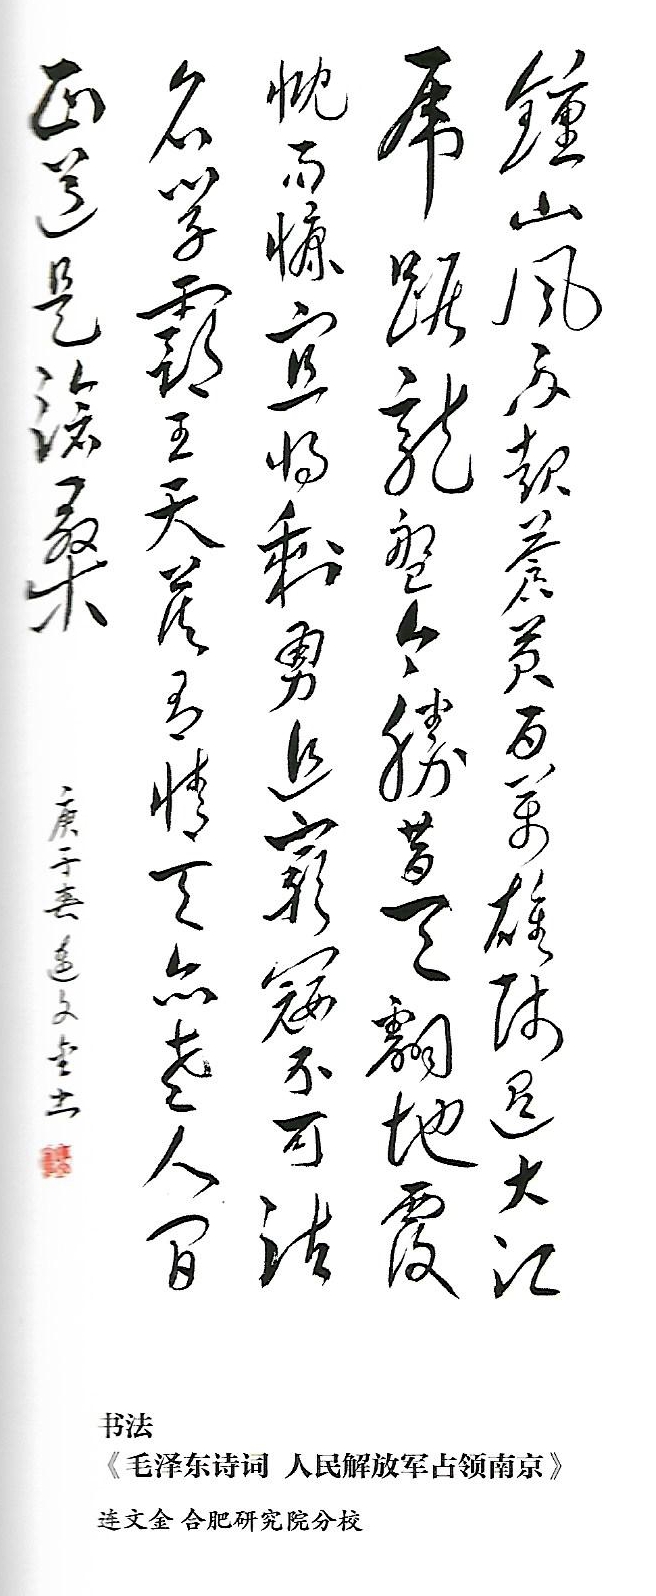 鍾山風雨起蒼黃百萬雄師過大江
虎踞龍盤今勝昔天翻地覆
慨而慷宜將剩勇追窮寇不可沽
名學霸王天若有情天亦老人間
正道是滄桑
庚子春連文金書
书法
《毛泽东诗词 人民解放军占领南京》
连文金 合肥研究院分校